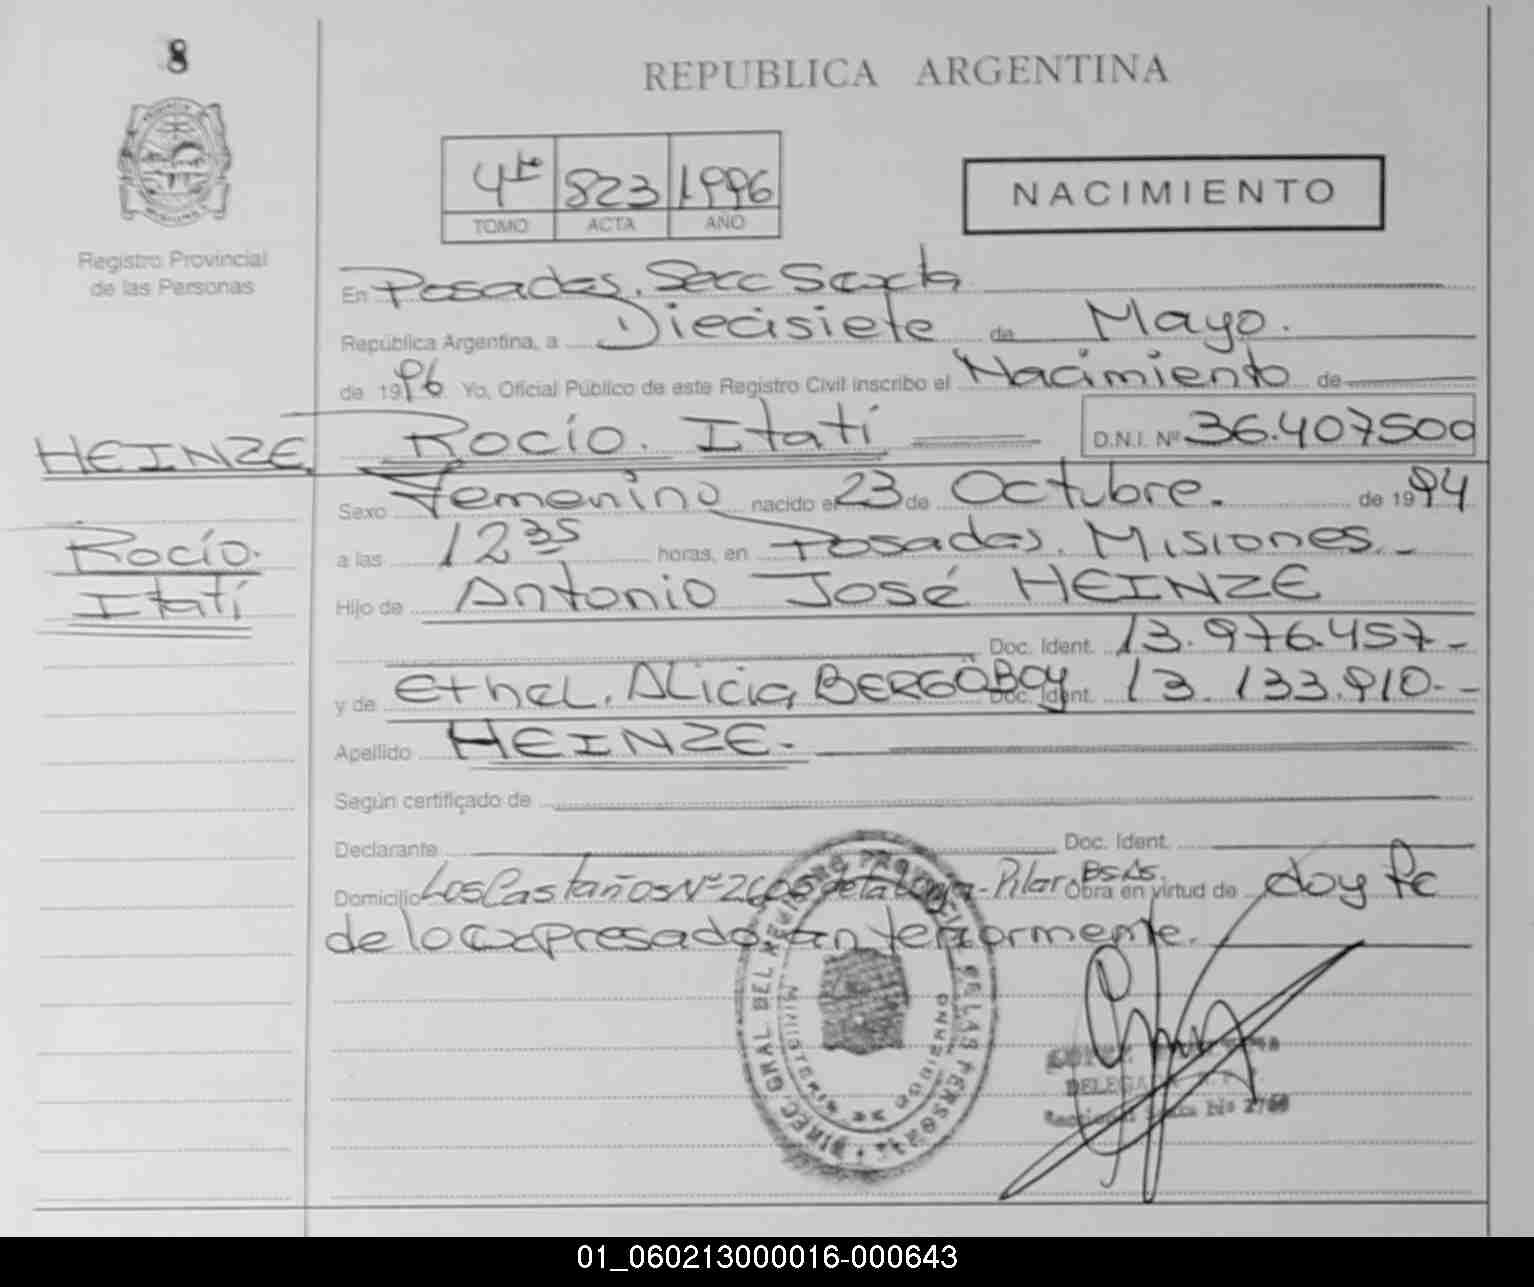 8
REPUBLICA ARGENTINA
4to 823 1996
TOMO ACTA AÑO
NACIMIENTO
Registro Provincial
de las Personas
En Posadas. Secc Sexta
República Argentina, a Diecisiete de Mayo.
de 1996. Yo, Oficial Público de este Registro Civil inscribo el Nacimiento de
HEINZE. Rocío. Itatí D.N.I. Nº 36.407500
Sexo Femenino nacido el 23 de Octubre. de 1994
Rocío.
Itatí
a las 12 35 horas, en Posadas. Misiones.-
Hijo de Antonio José HEINZE
Doc. Ident. 13.976.457-
y de Ethel. Alicia BERGOBOY Doc. Ident. 13.133.910--
Apellido HEINZE.
Según certificado de
Declarante Doc. Ident.
Domicilio Los Castaños Nº 2605 de la - Pilar. Bs As. Obra en virtud de doy fe
de lo expresado anteriormente.
DIREC. GRAL DEL REGISTRO PROVINCIAL DE LAS PERSONAS
MINISTERIO DE GOBIERNO
DELEGADA
01_060213000016-000643